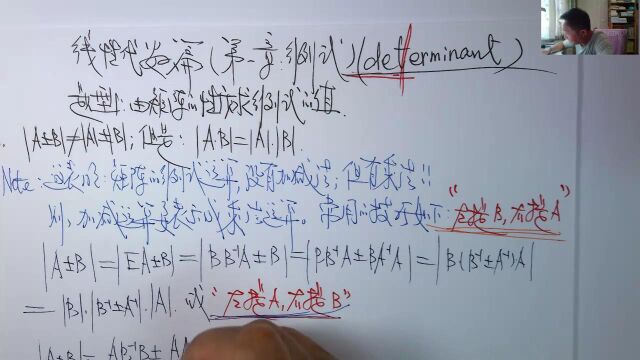 线性代数篇(第一章:行列式)(determinant)
题型1:由矩阵的性质求行列式的值.
|A±B|≠|A|±|B|;但是:|AB|=|A|·|B|.
Note:这表明:矩阵的行列式运算,没有加减法,但有乘法!!
则,加减运算要表示成乘法运算。常用的技巧如下:"左提B,右提A"
|A±B|=|EA±B|=|BB⁻¹A±B|=|BB⁻¹A±BA⁻¹A|=|B·(B⁻¹±A⁻¹)A|
=|B|·|B⁻¹±A⁻¹|·|A|. 或"左提A,右提B"